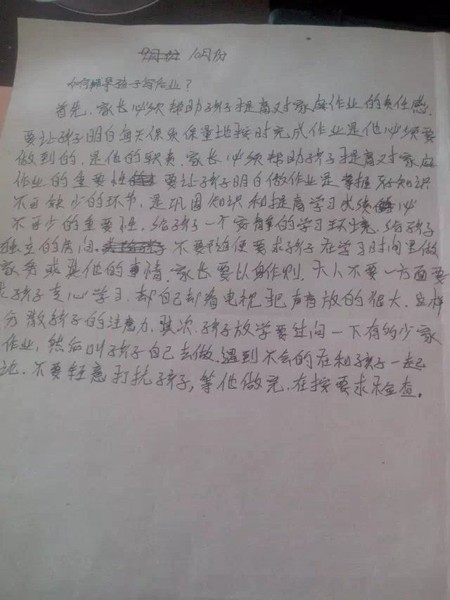 10月份
如何辅导孩子写作业？
首先，家长必须帮助孩子提高对家庭作业的责任感，
要让孩子明白每天保质保量地按时完成作业是他必须要
做到的，是他的职责，家长必须帮助孩子提高对家庭
作业的重要性 要让孩子明白做作业是掌握知识
不可缺少的环节，是巩固知识和提高学习成绩必
不可少的重要性，给孩子一个安静的学习环境，给孩子
独立的房间， 不要随便要求孩子在学习时间里做
家务或其他的事情，家长要以身作则，大人不要一方面要
求孩子专心学习，却自己却看电视把声音放的很大，这样
分散孩子的注意力，其次，孩子放学要过问一下有多少家
作业，然后叫孩子自己去做，遇到不会的在和孩子一起
，不要轻意打扰孩子，等他做完，在按要求来检查。